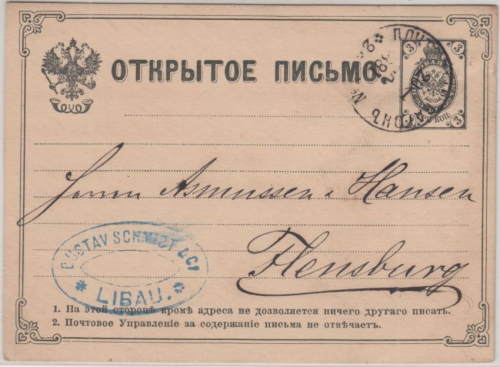 ОТКРЫТОЕ ПИСЬМО.
3 3
КОП. 3
Herrn Asmussen & Hansen
Flensburg
GUSTAV SCHMIDT & Co
* LIBAU. *
1. На этой сторонѣ кромѣ адреса не дозволяется ничего другаго писать.
2. Почтовое Управленіе за содержаніе письма не отвѣчаетъ.